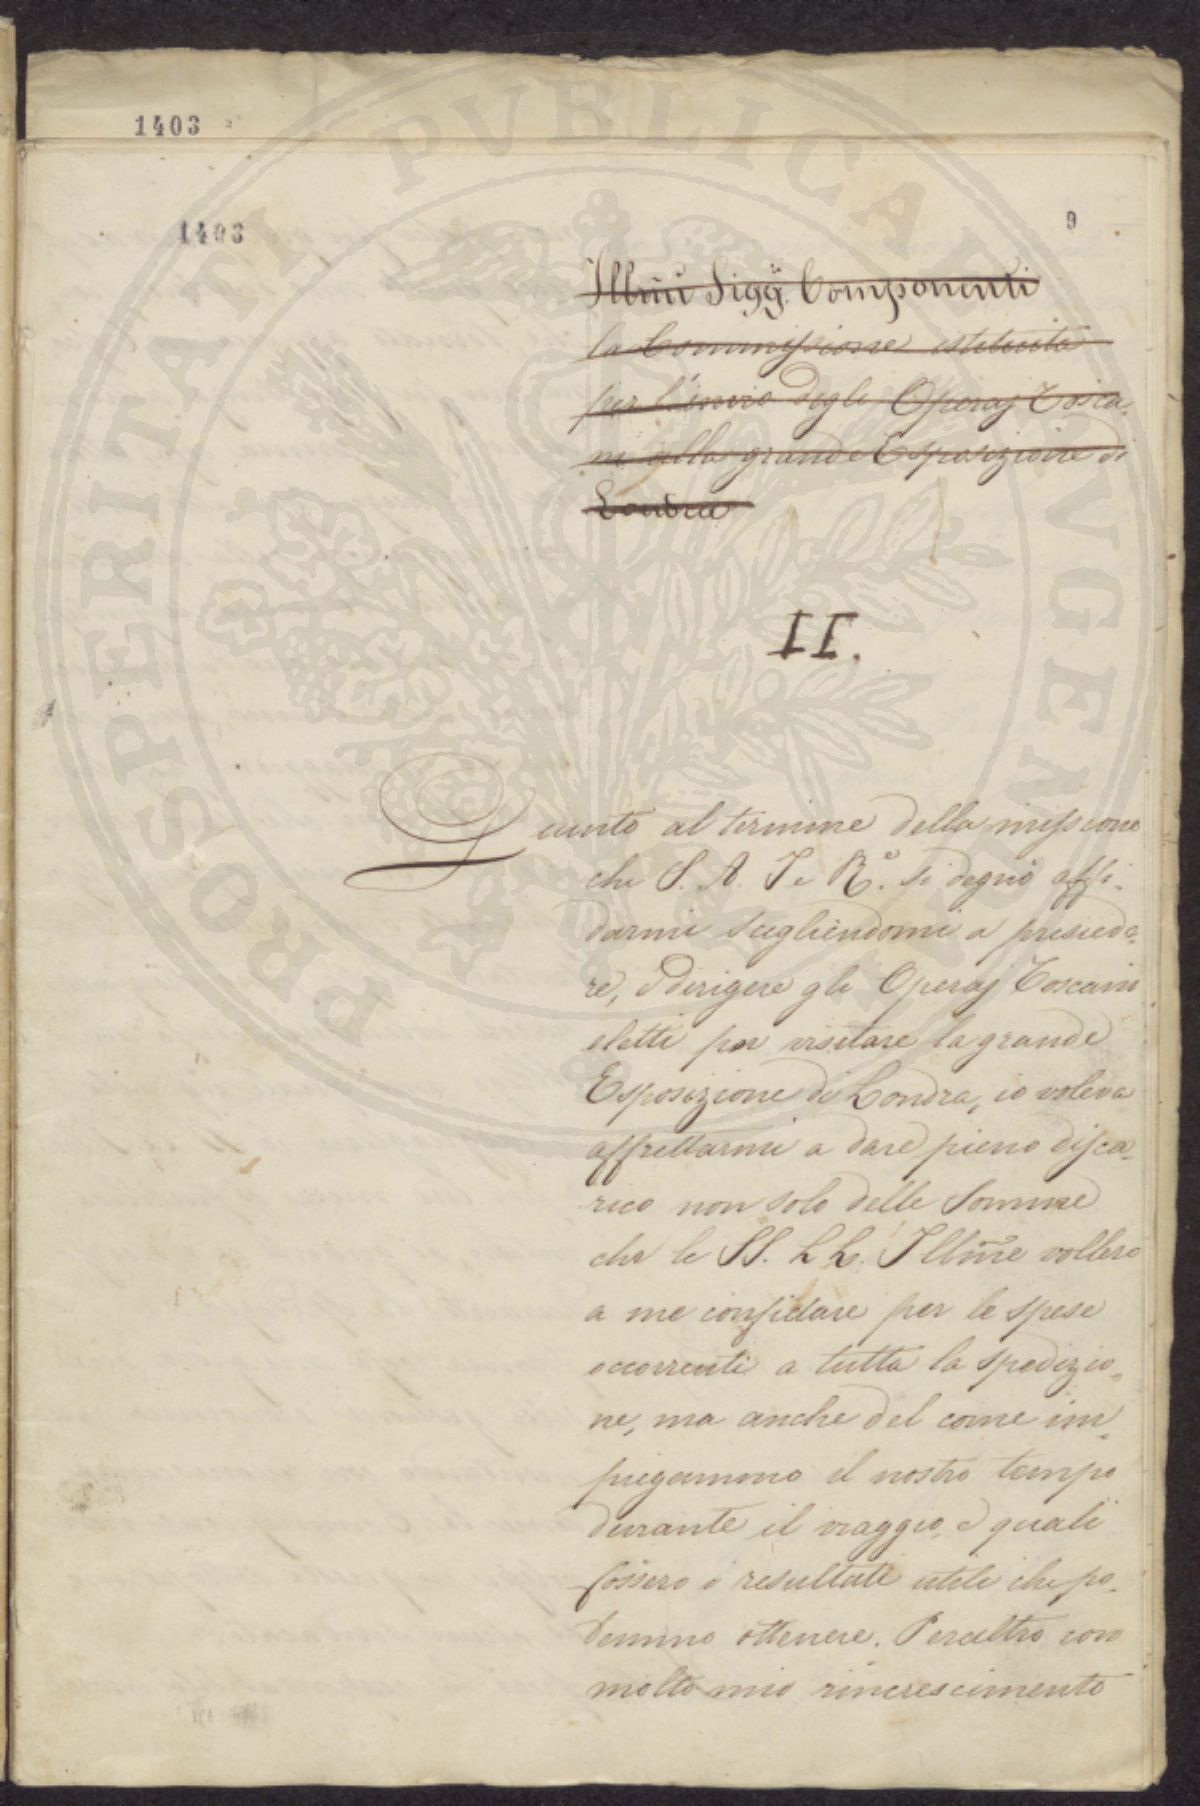 1403
1403
9
Illmi Sigg. Componenti
la Commissione istituita
per l'invio degli Operaj Tosca-
ni alla grande Esposizione di
Londra
II.
Giunto al termine della missione
che S. A. I e R. si degnò affi-
darmi scegliendomi a presiede-
re, e dirigere gli Operaj Toscani
eletti per visitare la grande
Esposizione di Londra, io voleva
affrettarmi a dare pieno disca-
rico non solo delle Somme
che le SS. LL. Illme vollero
a me confidare per le spese
occorrenti a tutta la spedizio-
ne, ma anche del come im-
piegammo il nostro tempo
durante il viaggio, e quali
fossero i resultati utili che po-
temmo ottenere. Peraltro con
molto mio rincrescimento
PROSPERITATI PVBLICAE AVGENDAE